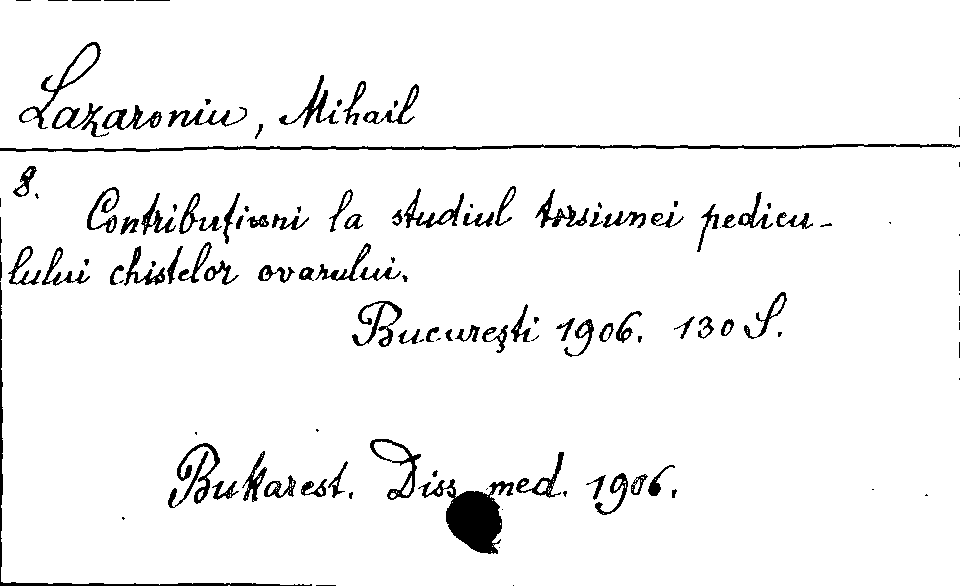 Lazaroniu, Mihail
8.
Contribuţiuni la studiul torsiunei pedicu-
lului chistelor ovarului.
Bucureşti 1906. 130 S.
Bukarest. Diss. med. 1906.